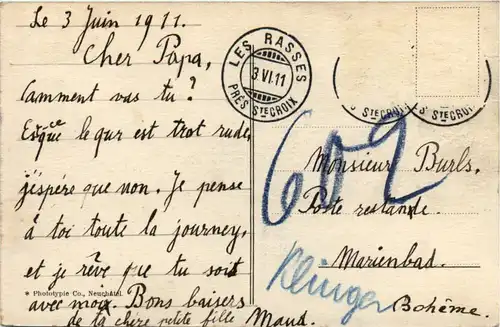 Le 3 Juin 1911.
Cher Papa,
Camment vas tu?
Esce que le qur est trot rude,
j'éspére que non. Je pense
à toi toute la journey,
et je rêve que tu soit
avec moi. Bons baisers
de ta chère petite fille Maud.
* Phototypie Co., Neuchâtel.
LES RASSES
3 VI. 11
PRÈS STE CROIX
STE CROIX
S STE CROIX
602
Monsieur Burls.
Poste restande.
Marienbad.
Klinger
Bohême.